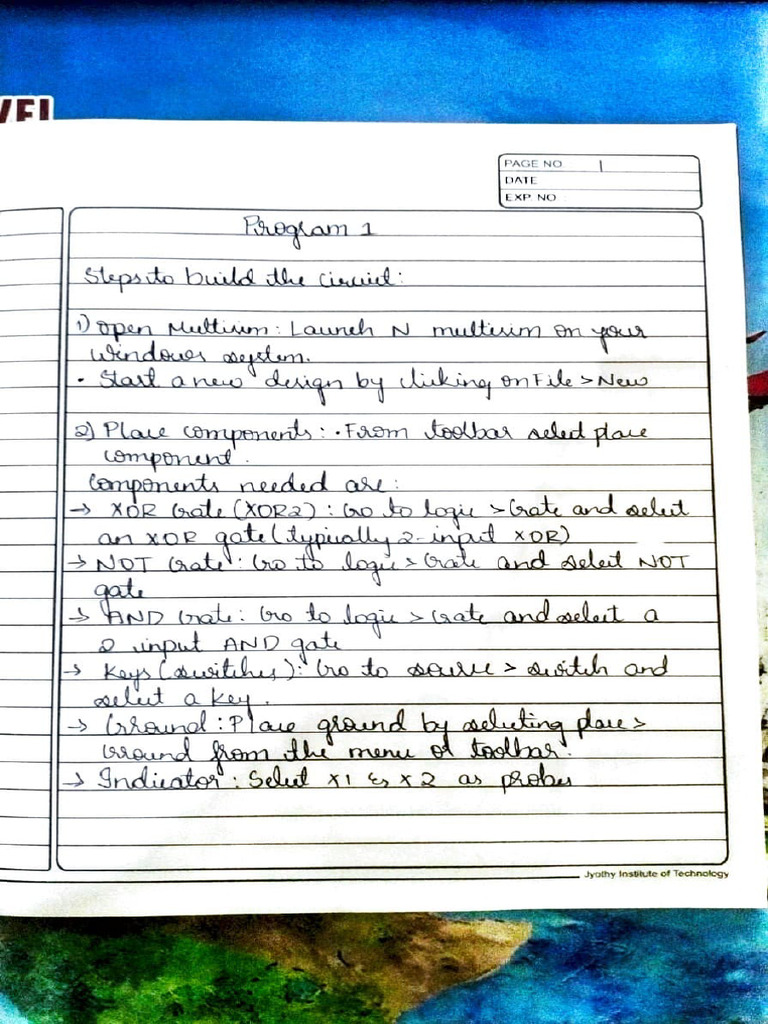 VEL
PAGE NO 1
DATE
EXP NO
Program 1
Steps to build the circuit:
1) Open Multisim: Launch N multisim on your
windows system.
• Start a new design by clicking on File > New
2) Place components: • From toolbar select place
component.
Components needed are:
→ XOR Gate (XOR2): Go to logic > Gate and select
an XOR gate (typically 2-input XOR)
→ NOT Gate: Go to logic > Gate and select NOT
gate
→ AND Gate: Go to logic > Gate and select a
2 input AND gate
→ Keys (switches): Go to source > switch and
select a key.
→ Ground: Place ground by selecting place >
Ground from the menu or toolbar.
→ Indicator: Select X1 & X2 as probes
Jyothy Institute of Technology